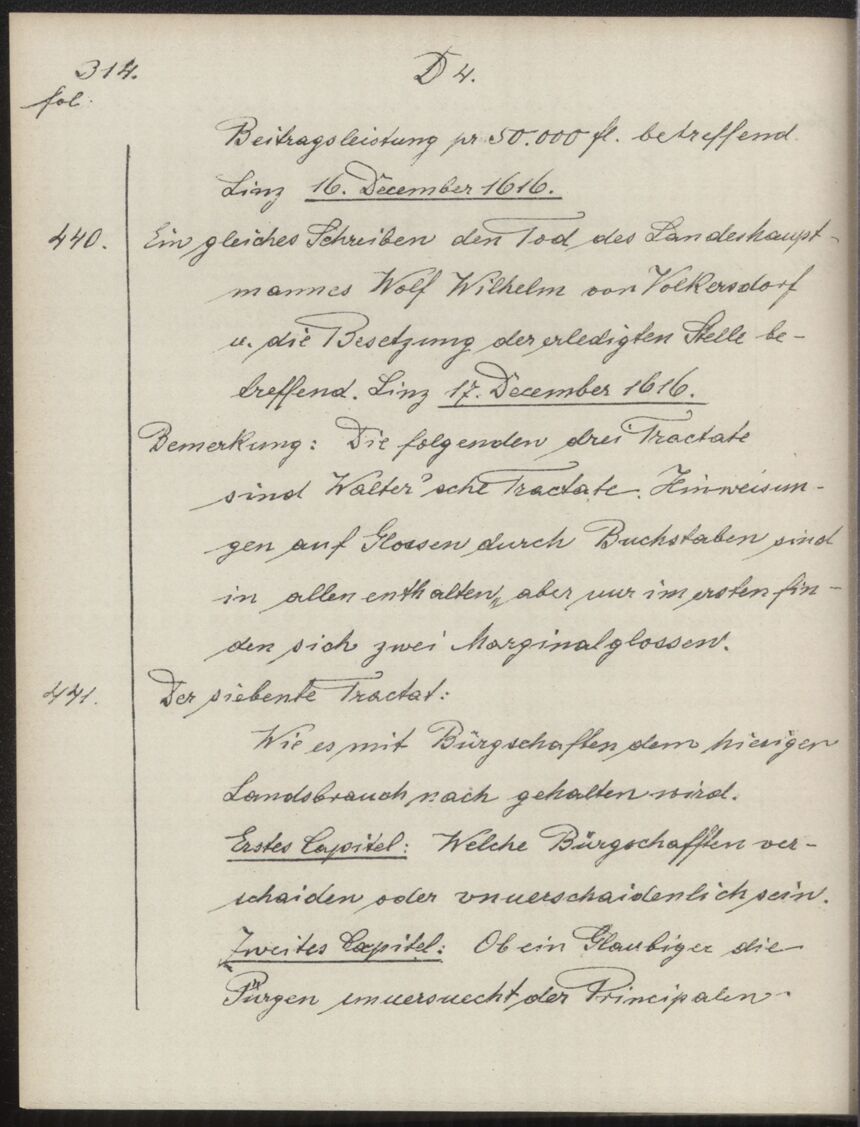 314. D 4.
fol:
Beitragsleistung pr 50.000 fl. betreffend.
Linz 16. December 1616.
440. Ein gleiches Schreiben den Tod des Landeshaupt-
mannes Wolf Wilhelm von Volkersdorf
u. die Besetzung der erledigten Stelle be-
treffend. Linz 17. December 1616.
Bemerkung: Die folgenden drei Tractate
sind Walter'sche Tractate. Hinweisun-
gen auf Glossen durch Buchstaben sind
in allen enthalten, aber nur im ersten fin-
den sich zwei Marginalglossen.
441. Der siebente Tractat:
Wie es mit Bürgschaften dem hiesigen
Landsbrauch nach gehalten wird.
Erstes Capitel: Welche Bürgschafften ver-
schaiden oder vnuerschaidenlich sein.
Zweites Capitel: Ob ein Glaubiger die
Pürgen unuersuecht der Principalen